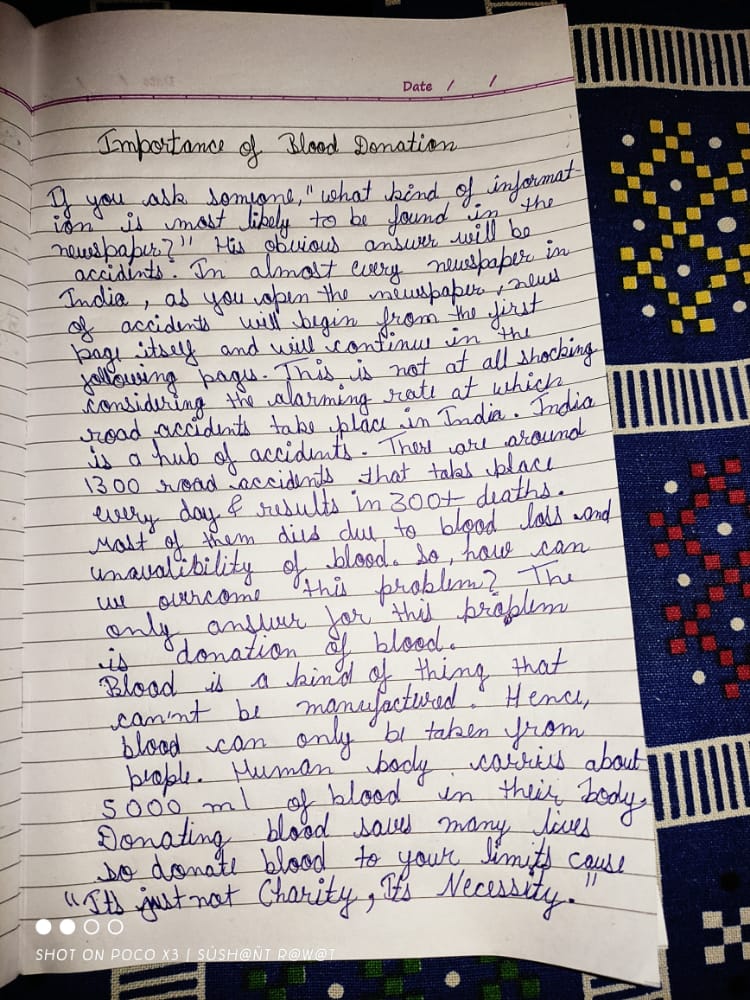 Date / /
Importance of Blood Donation
If you ask someone, "what kind of informat-
ion is most likely to be found in the
newspaper?" His obvious answer will be
accidents. In almost every newspaper in
India, as you open the newspaper, news
of accidents will begin from the first
page itself and will continue in the
following pages. This is not at all shocking
considering the alarming rate at which
road accidents take place in India. India
is a hub of accidents. There are around
1300 road accidents that takes place
every day & results in 300+ deaths.
Most of them dies due to blood loss and
unavalibility of blood. So, how can
we overcome this problem? The
only answer for this problem
is donation of blood.
Blood is a kind of thing that
can'nt be manufactured. Hence,
blood can only be taken from
people. Human body carries about
5000 ml of blood in their body.
Donating blood saves many lives
so donate blood to your limits cause
"Its just not Charity, Its Necessity."
SHOT ON POCO X3 | SÚSH@ÑT R@W@T